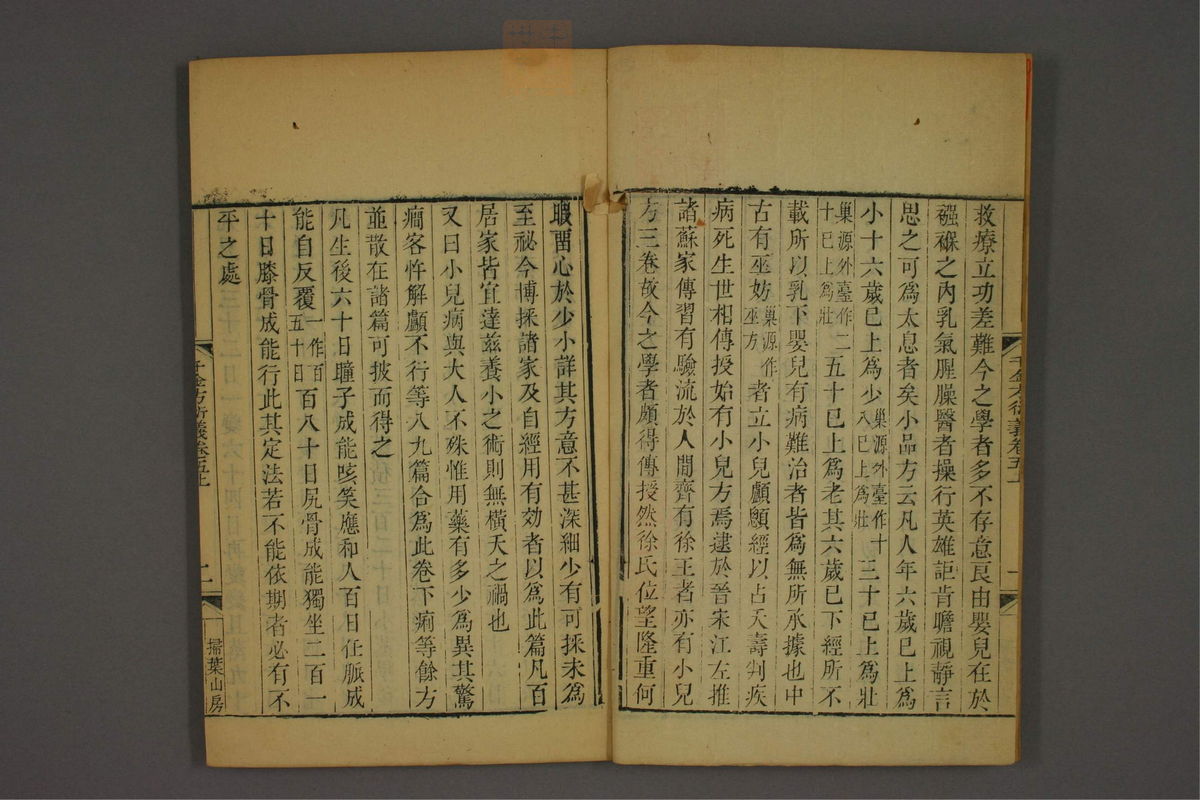 救療立功差難今之學者多不存意良由嬰兒在於
襁褓之內乳氣腥臊醫者操行英雄詎肯瞻視靜言
思之可爲太息者矣小品方云凡人年六歲已上爲
小十六歲已上爲少巢源外臺作十八已上爲壯三十已上爲壯
巢源外臺作二十已上爲壯五十已上爲老其六歲已下經所不
載所以乳下嬰兒有病難治者皆爲無所承據也中
古有巫妨巢源作巫方者立小兒顱顖經以占夭壽判疾
病死生世相傳授始有小兒方焉逮於晉宋江左推
諸蘇家傳習有驗流於人閒齊有徐王者亦有小兒
方三卷故今之學者頗得傳授然徐氏位望隆重何
千金方衍義卷五上
一
暇留心於少小詳其方意不甚深細少有可採未爲
至祕今博採諸家及自經用有效者以爲此篇凡百
居家皆宜達茲養小之術則無橫夭之禍也
又曰小兒病與大人不殊惟用藥有多少爲異其驚
癇客忤解顱不行等八九篇合爲此卷下痢等餘方
並散在諸篇可披而得之
凡生後六十日瞳子成能咳笑應和人百日任脈成
能自反覆一作百五十日百八十日尻骨成能獨坐二百一
十日膝骨成能行此其定法若不能依期者必有不
平之處
千金方衍義卷五上
掃葉山房